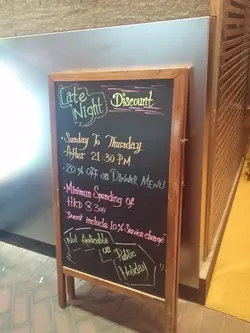 Late
Night Discount
• Sunday To Thursday
After 21:30 PM
- 20% OFF on DINNER MENU
• Minimum Spending of
HKD $300
"Doesn't include 10% Service charge"
Not Applicable
on Public
Holiday